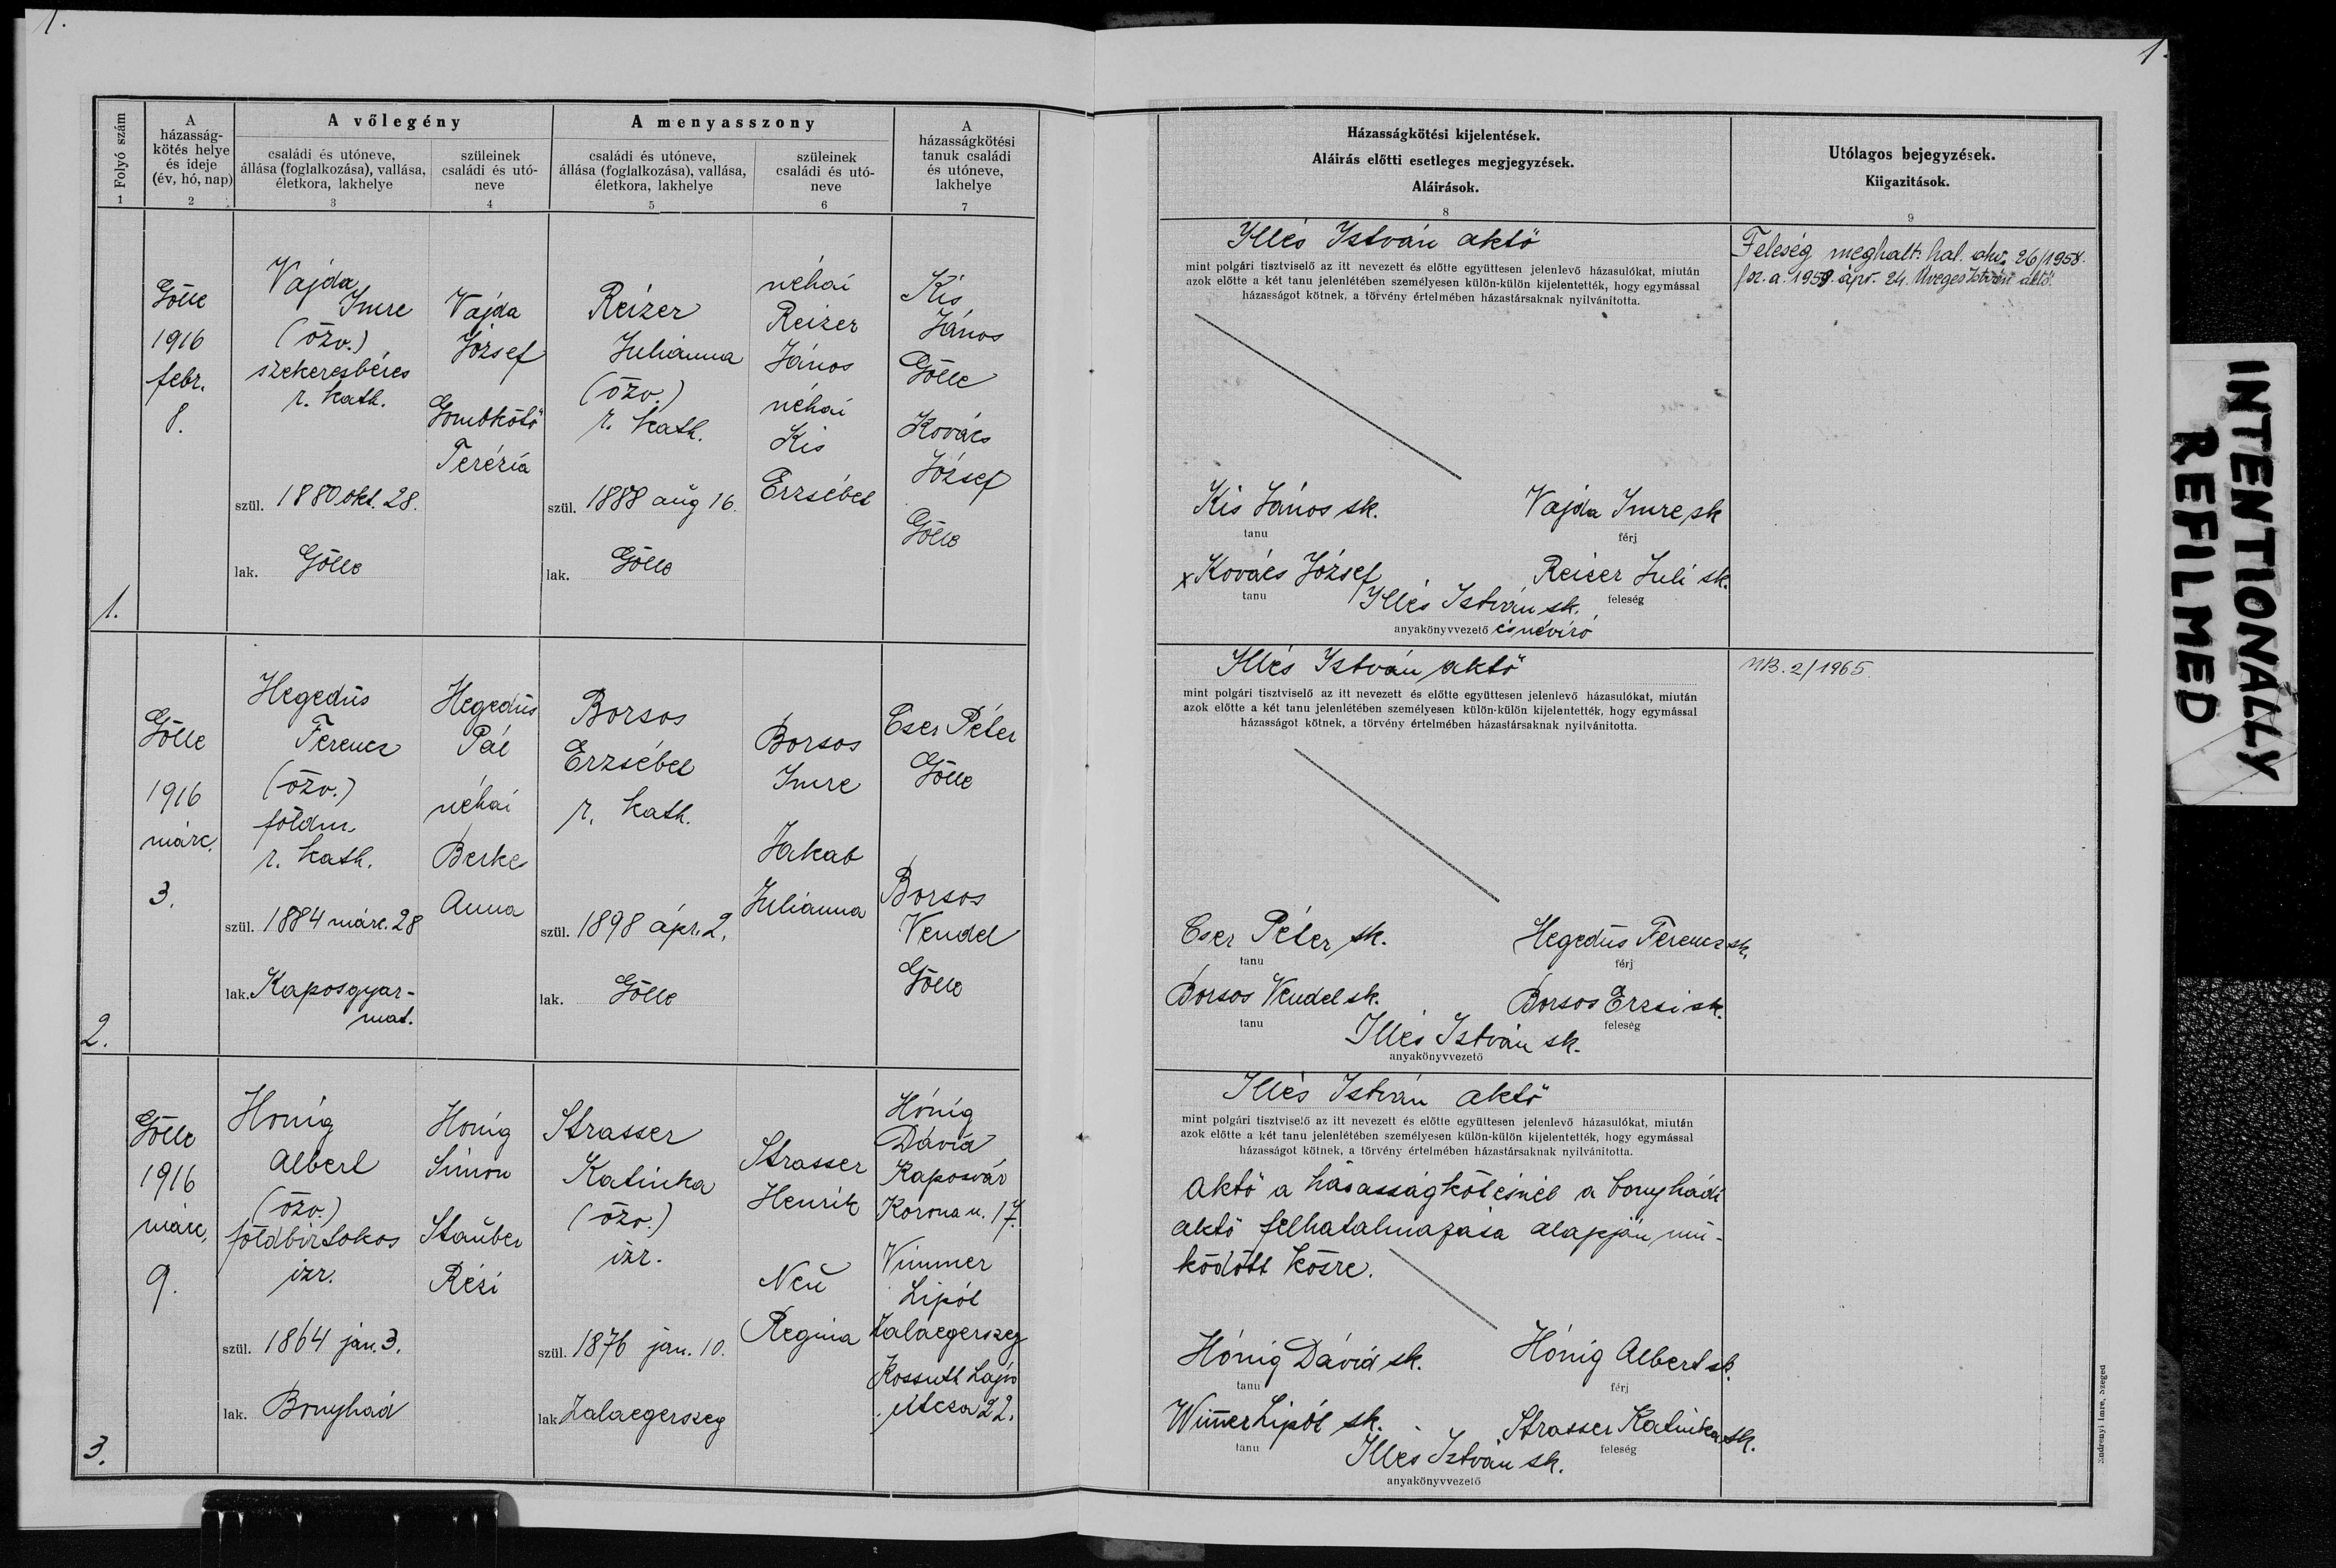 1.
Folyó szám
A házasság-
kötés helye
és ideje
(év, hó, nap)
A vőlegény
családi és utóneve,
állása (foglalkozása), vallása,
életkora, lakhelye
szüleinek
családi és utó-
neve
A menyasszony
családi és utóneve,
állása (foglalkozása), vallása,
életkora, lakhelye
szüleinek
családi és utó-
neve
A
házasságkötési
tanuk családi
és utóneve,
lakhelye
1 2 3 4 5 6 7
1.
Gölle
1916
febr.
8.
Vajda
Imre
(özv.)
szekeresbéres
r. kath.
szül. 1880 okt. 28.
lak. Gölle
Vajda
József
Gombkötő
Terézia
Reizer
Julianna
(özv.)
r. kath.
szül. 1888 aug 16.
lak. Gölle
néhai
Reizer
János
néhai
Kis
Erzsébet
Kis
János
Gölle
Kovács
József
Gölle
2.
Gölle
1916
márc.
3.
Hegedüs
Ferencz
(özv.)
földm.
r. kath.
szül. 1884 márc. 28
lak. Kaposgyar-
mat.
Hegedüs
Pál
néhai
Berke
Anna
Borsos
Erzsébet
r. kath.
szül. 1898 ápr. 2.
lak. Gölle
Borsos
Imre
Jakab
Julianna
Eser Péter
Gölle
Borsos
Vendel
Gölle
3.
Gölle
1916
márc.
9.
Hónig
Albert
(özv.)
földbirtokos
izr.
szül. 1864 jan. 3.
lak. Bonyhád
Hónig
Simon
Stauber
Rézi
Strasser
Katinka
(özv.)
izr.
szül. 1876 jan. 10.
lak Zalaegerszeg
Strasser
Henrik
Neu
Regina
Hónig
Dávid
Kaposvár
Korona u. 17.
Vimmer
Lipót
Zalaegerszeg
Kossuth Lajos
utcza 22.
1.
Házasságkötési kijelentések.
Aláirás előtti esetleges megjegyzések.
Aláirások.
8
Utólagos bejegyzések.
Kiigazitások.
9
Illés István aktő
mint polgári tisztviselő az itt nevezett és előtte együttesen jelenlevő házasulókat, miután
azok előtte a két tanu jelenlétében személyesen külön-külön kijelentették, hogy egymással
házasságot kötnek, a törvény értelmében házastársaknak nyilvánitotta.
Kis János sk. Vajda Imre sk
tanu férj
x Kovács József Reicer Juli sk.
tanu feleség
Illés István sk.
anyakönyvvezető és névíró
Feleség meghalt: hal. akv. 26/1958.
1959. ápr. 24. Üveges István aktő.
Illés István aktő
mint polgári tisztviselő az itt nevezett és előtte együttesen jelenlevő házasulókat, miután
azok előtte a két tanu jelenlétében személyesen külön-külön kijelentették, hogy egymással
házasságot kötnek, a törvény értelmében házastársaknak nyilvánitotta.
Eser Péter sk. Hegedüs Ferencz sk.
tanu férj
Borsos Vendel sk. Borsos Erzsi sk.
tanu feleség
Illés István sk.
anyakönyvvezető
UB. 2/1965.
Illés István aktő
mint polgári tisztviselő az itt nevezett és előtte együttesen jelenlevő házasulókat, miután
azok előtte a két tanu jelenlétében személyesen külön-külön kijelentették, hogy egymással
házasságot kötnek, a törvény értelmében házastársaknak nyilvánitotta.
Aktő a házasságkötésnél a bonyhádi
aktő felhatalmazása alapján mü-
ködött közre.
Hónig Dávid sk. Hónig Albert sk.
tanu férj
Wimmer Lipót sk. Strasser Katinka sk.
tanu feleség
Illés István sk.
anyakönyvvezető
Endrenyi Imre, Szeged
INTENTIONALLY
REFILMED